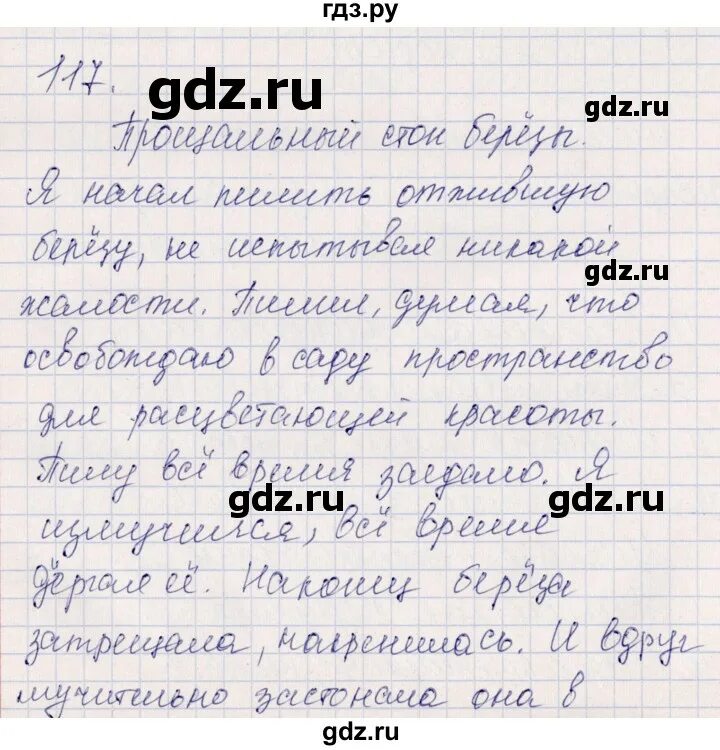 гдз.ру
117.
gdz.ru
Прощальный стон берёзы.
gdz.ru
Я начал пилить отжившую
берёзу, не испытывая никакой
gdz.ru
жалости. Пилил, думая, что
освобождаю в саду пространство
для расцветающей красоты.
Пилу всё время заедало. Я
gdz.ru
gdz.ru
измучился, всё время
дёргал её. Наконец берёза
затрещала, накренилась. И вдруг
мучительно застонала она в
gdz.ru